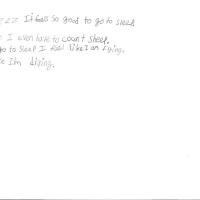 zzz It feels so good to go to sleep
I even have to count sheep.
go to sleep I feel like I am flying.
I'm diping.